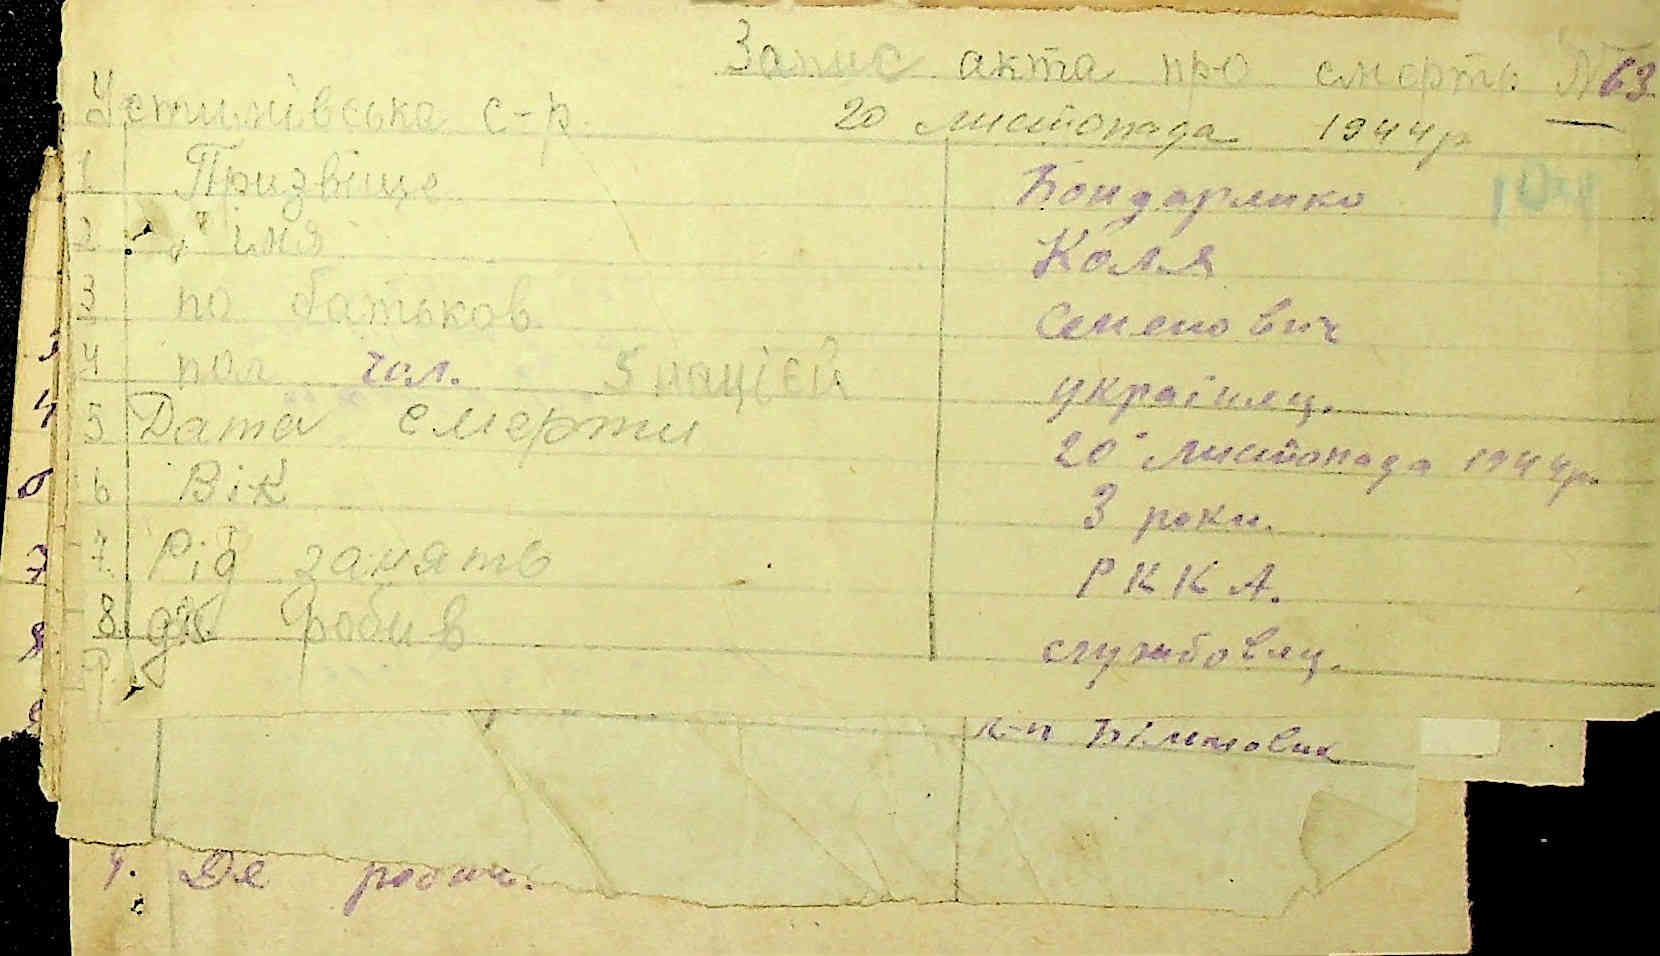 Запис акта про смерть № 63
Устимівська с-р. 20 листопада 1944р
1 Призвіще Бондаренко
2 " імя Коля
3 по батьков Семенович
4 пол чол. 5 націєй українец.
5 Дата смерти 20 листопада 1944р.
6 Вік 3 роки.
7 Рід занять Р К К А.
8. де робив службовец.
9. Де робит.